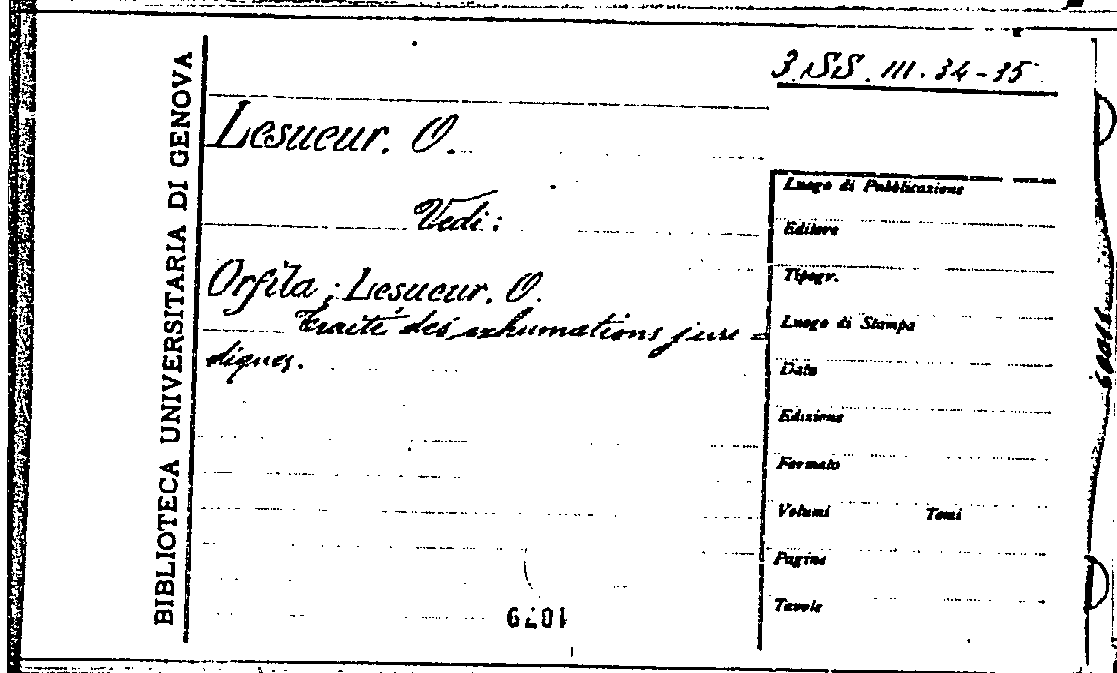 3.SS.III.34-35
BIBLIOTECA UNIVERSITARIA DI GENOVA
Lesueur. O.
Vedi:
Orfila; Lesueur. O.
Traité des exhumations juri=
diques.
Luogo di Pubblicazione
Editore
Tipogr.
Luogo di Stampa
Data
Edizione
Formato
Volumi Tomi
Pagine
Tavole
1079